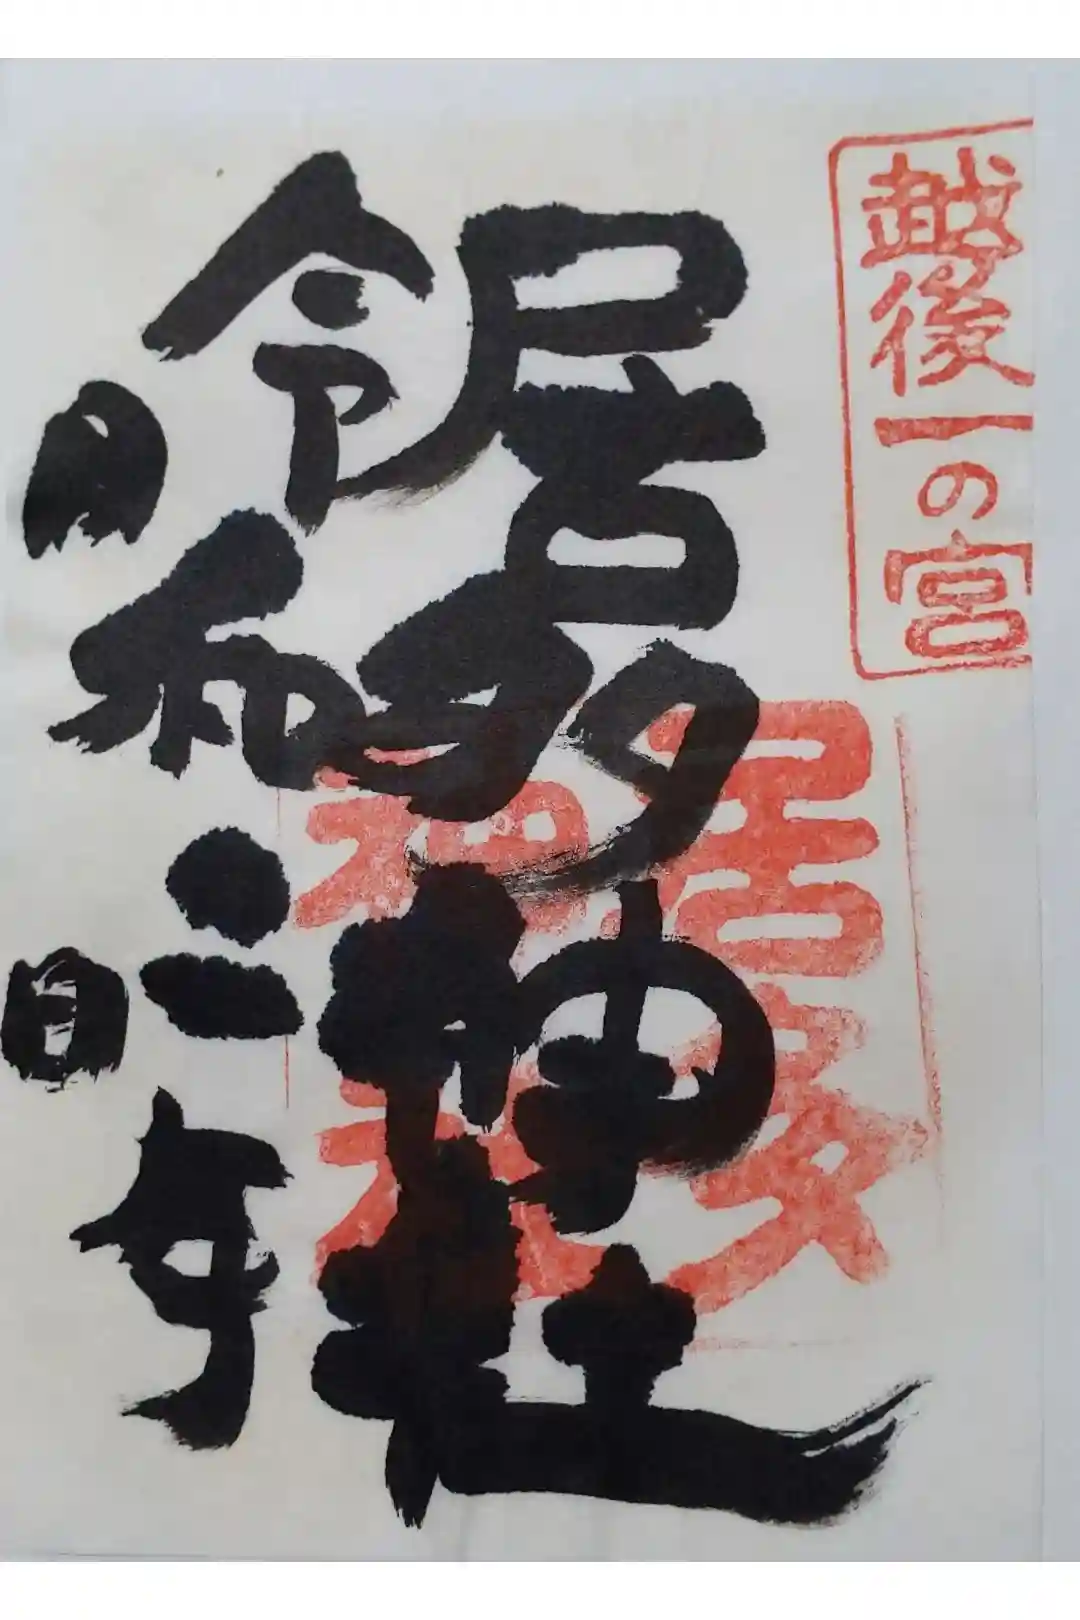 越後一の宮
居多神社
居多
神社
令和二年
月 日